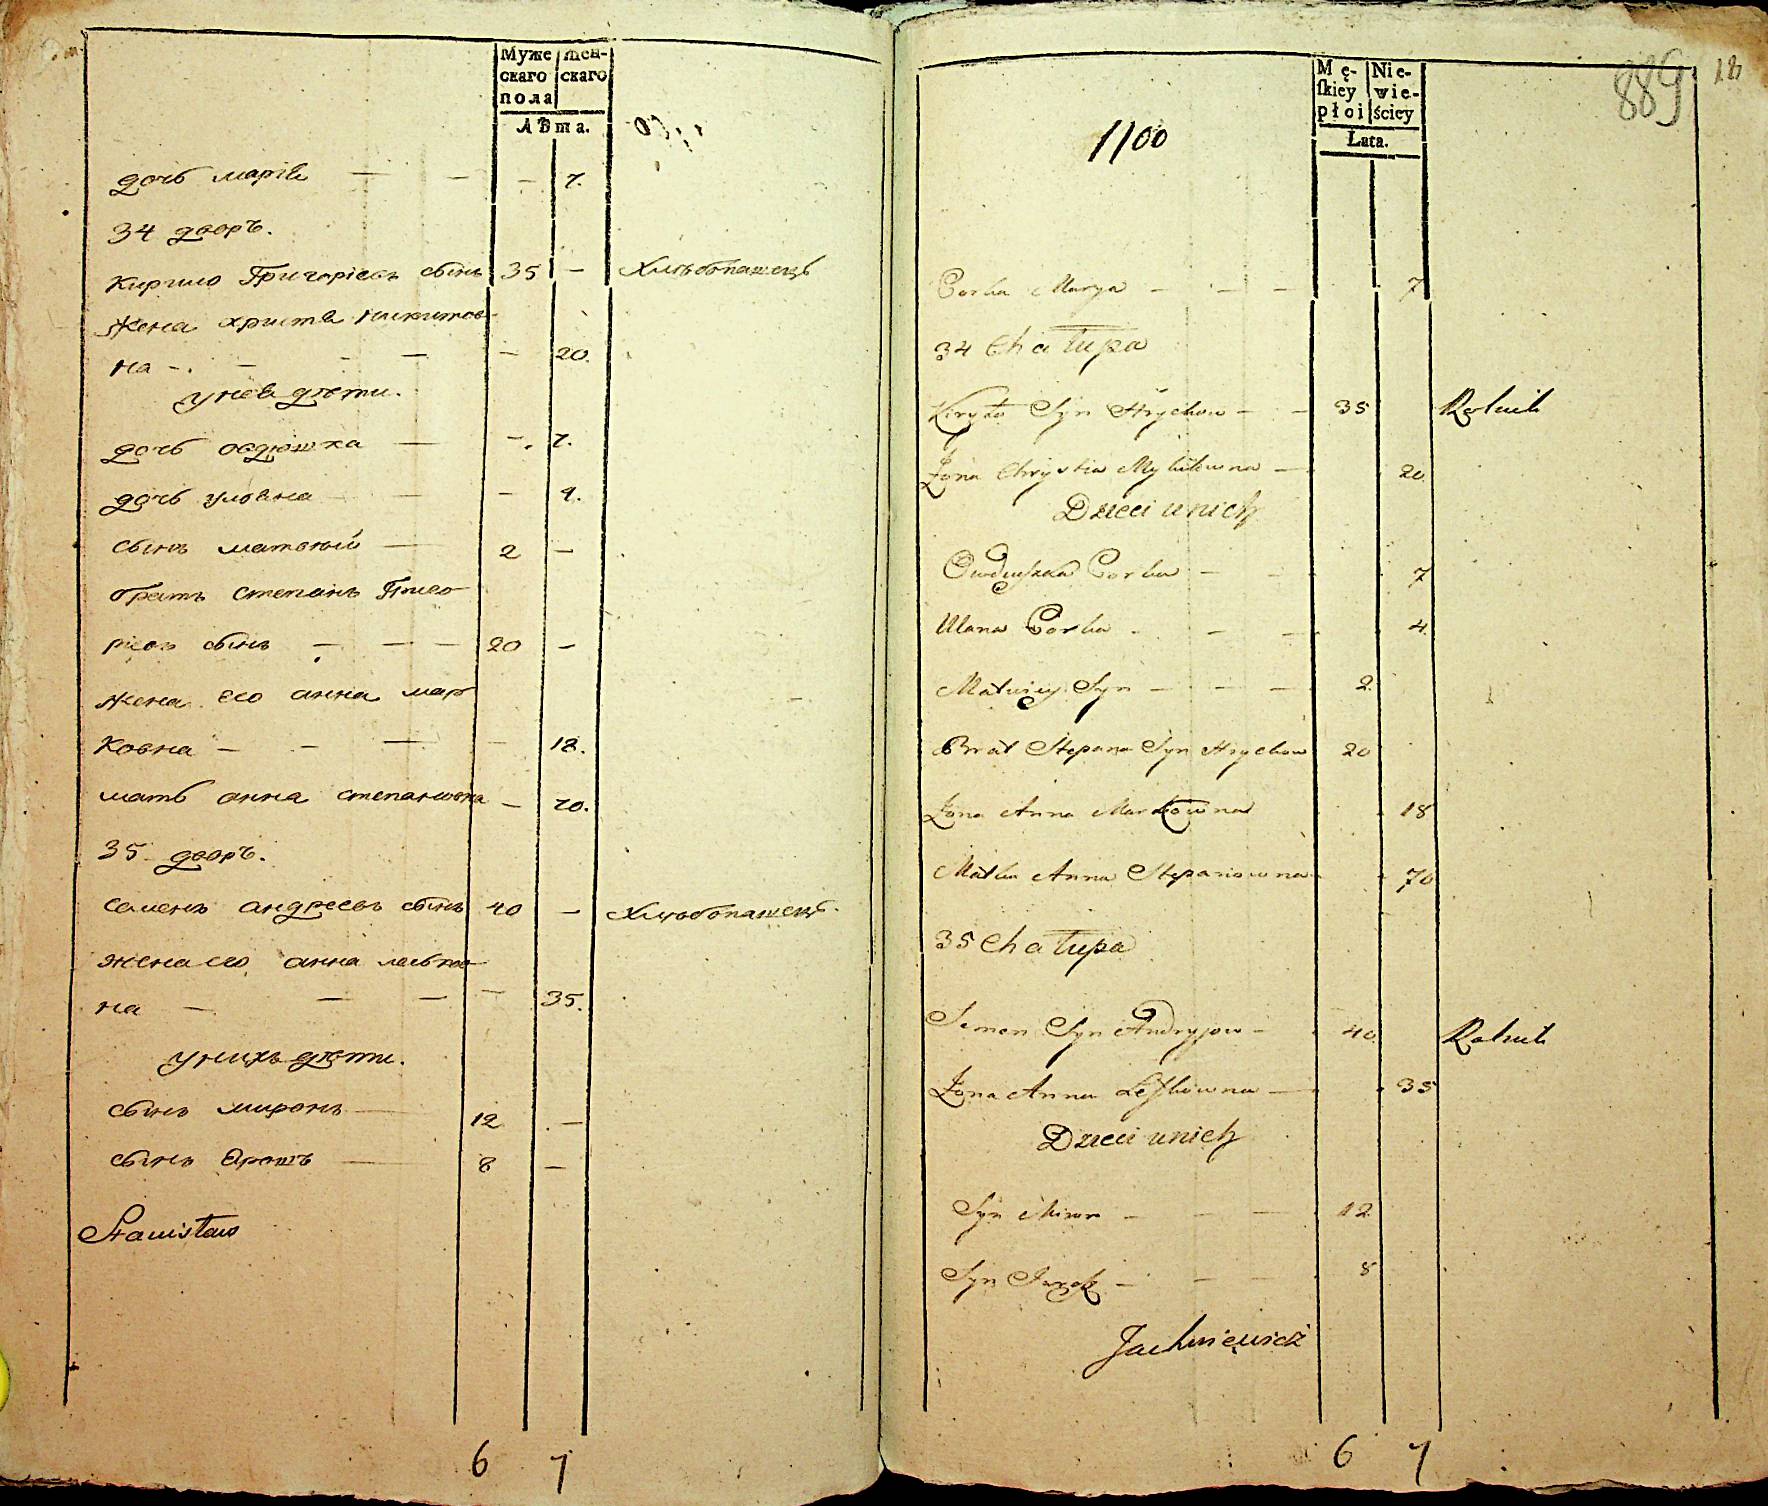 Муже
скаго
пола
жен-
скаго
лѣта.
дочь марія — — — 7.
34 дворъ.
кирило Григоріевъ сынъ 35 — Хлѣбопашецъ
жена христя никитов-
на — — — — 20.
у нея дѣти.
дочь овдюшка — — 7.
дочь уляна — — 4.
сынъ матвѣй — 2 —
братъ степанъ Григо
ріевъ сынъ — — — 20 —
жена его анна мар
ковна — — — — 18.
мать анна степановна — 70.
35 дворъ.
семенъ андреевъ сынъ 40 — Хлѣбопашецъ.
жена его анна леськов
на — — — — 35.
у нихъ дѣти.
сынъ миронъ — 12 —
сынъ — 8 —
Stanisław
6 7
889 18
Mę-
ſkiey
płci
Nie-
wie-
ściey
Lata.
1100
Corka Marya — — — 7
34 Chałupa
Kiryło Syn Hrychow — — 35 Rolnik
Żona Chrystia Mykitowna — 20
Dzieci unich
Owduszka Corka — — 7
Ulana Corka — — — 4.
Matwiey Syn — — — 2.
Brat Stepana Syn Hrychow 20
Żona Anna Markowna 18
Matka Anna Stepanowna 70
35 Chałupa
Semen Syn Andryjow — 40. Rolnik
Żona Anna Leſkowna — 35
Dzieci unich
Syn Miron — — — 12
Syn — — — 8
Jachniewicz
6 7